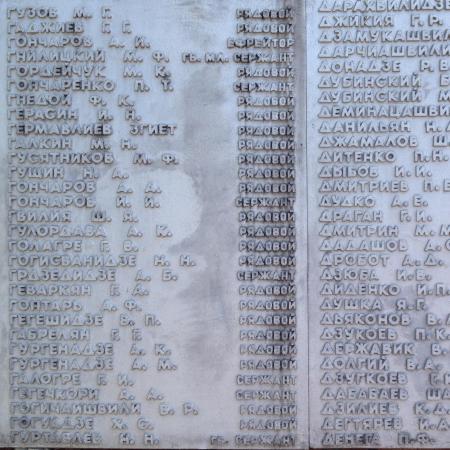 ГУЗОВ М. Г. РЯДОВОЙ
ГАДЖИЕВ Г. Г. РЯДОВОЙ
ГОНЧАРОВ А. И. ЕФРЕЙТОР
ГНИЛИЦКИЙ М. Ф. ГВ. МЛ. СЕРЖАНТ
ГОРДЕЙЧУК М. К. РЯДОВОЙ
ГОНЧАРЕНКО П. Т. СЕРЖАНТ
ГНЕДОЙ Ф. К. РЯДОВОЙ
ГЕРАСИН И. Н. РЯДОВОЙ
ГЕРМАВЛИЕВ ЗГИЕТ РЯДОВОЙ
ГАЛКИН М. Н. РЯДОВОЙ
ГУСЯТНИКОВ М. Ф. РЯДОВОЙ
ГУЩИН Н. А. РЯДОВОЙ
ГОНЧАРОВ А. А. РЯДОВОЙ
ГОНЧАРОВ И. И. СЕРЖАНТ
ГВИЛИЯ Ш. Я. РЯДОВОЙ
ГУЛОРДАВА А. К. РЯДОВОЙ
ГОЛАГРЕ Г. В. РЯДОВОЙ
ГОГИСВАНИДЗЕ Н. Н. РЯДОВОЙ
ГРДЗЕДИДЗЕ А. Б. СЕРЖАНТ
ГЕВАРКЯН Г. А. РЯДОВОЙ
ГОНТАРЬ А. Ф. РЯДОВОЙ
ГЕГЕШИДЗЕ В. П. РЯДОВОЙ
ГАБРЕЛЯН Г. Г. РЯДОВОЙ
ГУРГЕНАДЗЕ А. К. РЯДОВОЙ
ГУРГЕНАДЗЕ А. М. РЯДОВОЙ
ГАЛОГРЕ Г. И. СЕРЖАНТ
ГЕГЕЧКОРИ А. А. СЕРЖАНТ
ГОГИЧАИШВИЛИ В. Р. РЯДОВОЙ
ГОГУАДЗЕ Х. С. РЯДОВОЙ
ГУРТАВЛЕВ Н. Н. ГВ. СЕРЖАНТ
ДАРАХВИЛИДЗЕ
ДЖИКИЯ Г. Р.
ДЗАМУКАШВИ
ДАРЧИАШВИЛИ
ДОНАДЗЕ Р. В
ДУБИНСКИЙ
ДУБИНСКИЙ М
ДЕМИНАЦАШВИ
ДАНИЛЬЯН Н. А
ДЖАМАЛОВ Ш
ДИТЕНКО П. Н.
ДЫБОВ И. И.
ДМИТРИЕВ П. Е
ДУДКО А. Е.
ДРАГАН Г. И.
ДМИТРИН М. М
ДАДАШОВ А. С
ДРОБОТ А. Д.
ДЗЮБА И. Е.
ДИДЕНКО И. П.
ДУШКА Я. Г.
ДЬЯКОНОВ В. А
ДЗУКОЕВ П. К.
ДЕРЖАВИК В.
ДОЛГИЙ В. А.
ДЗУГКОЕВ Г.
ДАБАБАЕВ ША
ДЗИЛИЕВ К. Д.
ДЕГТЯРЕВ И. А
ДЕНЕГА П. Ф.